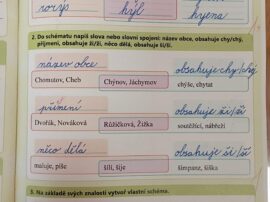 rorýs hýl hyena
2. Do schématu napiš slova nebo slovní spojení: název obce, obsahuje chy/chý,
příjmení, obsahuje ži/ží, něco dělá, obsahuje ši/ší.
název obce obsahuje chy/chý
Chomutov, Cheb Chýnov, Jáchymov chýše, chytat
příjmení obsahuje ži/ží
Dvořák, Nováková Růžičková, Žižka soutěžící, nábřeží
něco dělá obsahuje ši/ší
maluje, píše šili, šije šimpanz, šiška
3. Na základě svých znalostí vytvoř vlastní schéma.